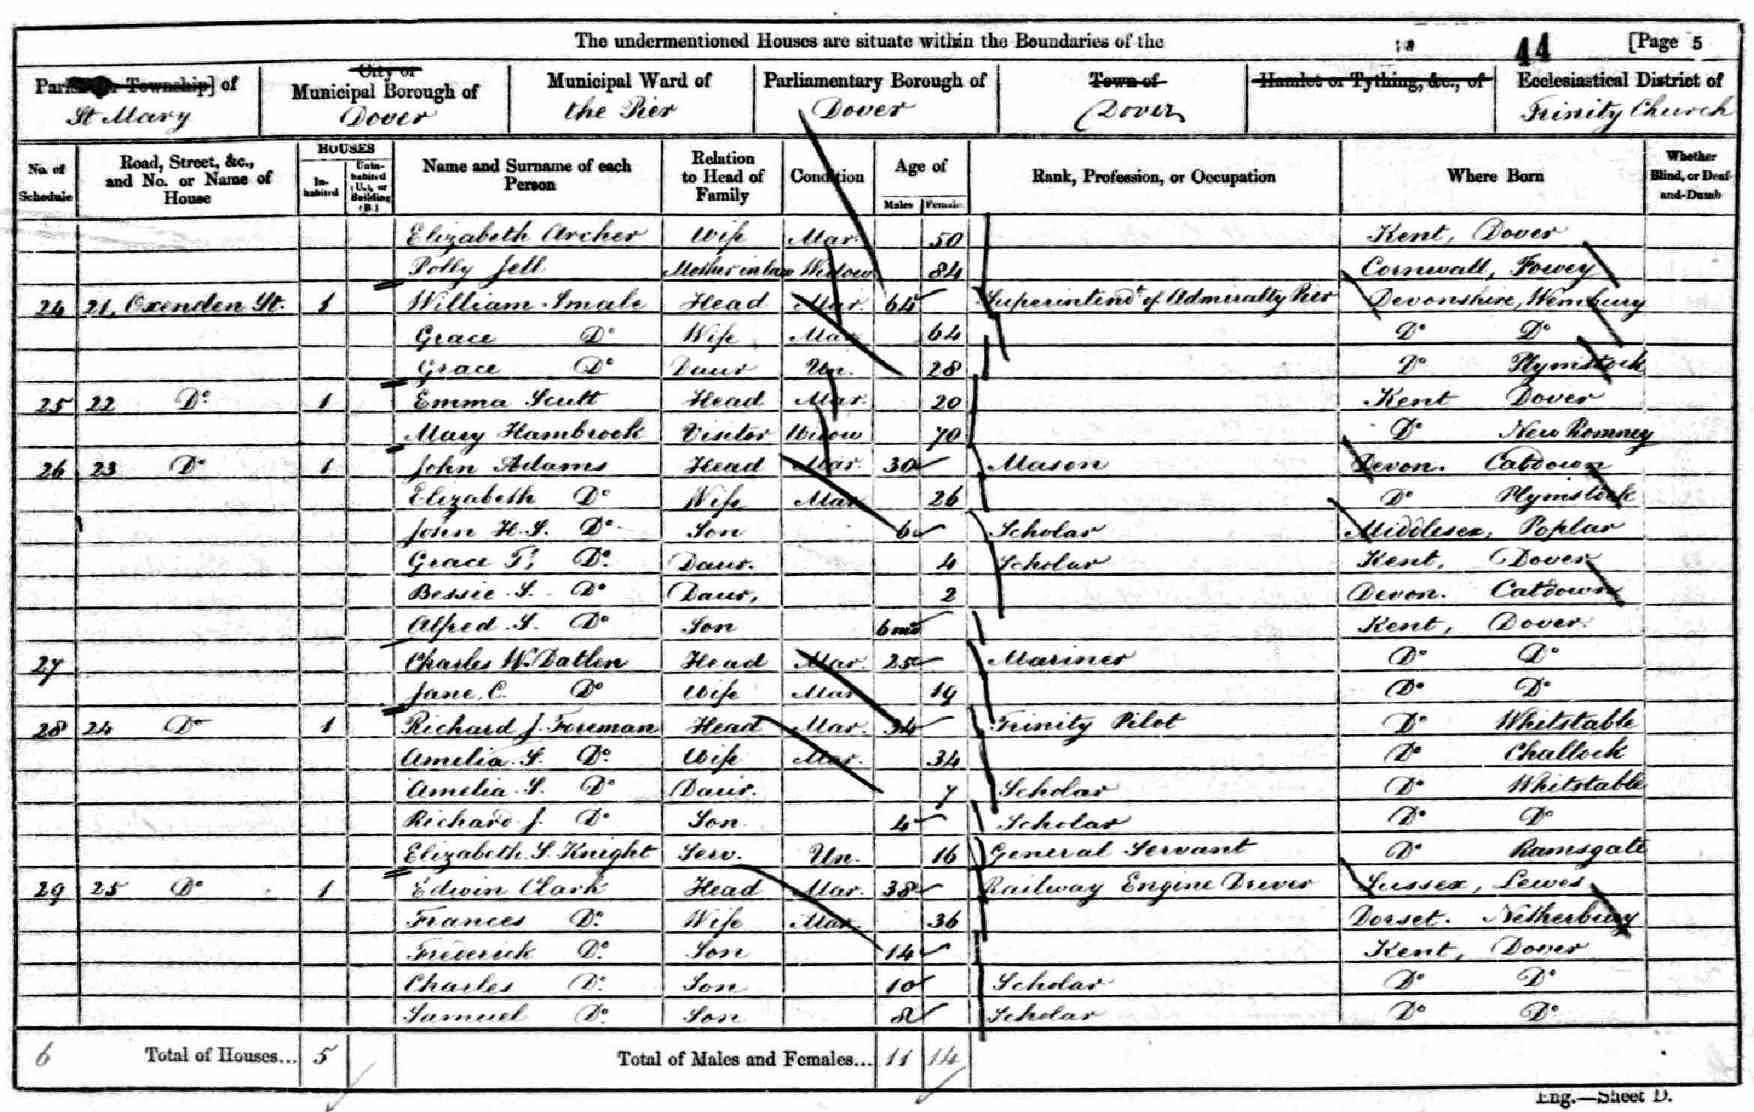 The undermentioned Houses are situate within the Boundaries of the 44 [Page 5
Parish [or Township] of City or Municipal Borough of Municipal Ward of Parliamentary Borough of Town of Hamlet or Tything, &c., of Ecclesiastical District of
St Mary Dover the Pier Dover Dover Trinity Church
No. of Schedule Road, Street, &c., and No. or Name of House HOUSES Inhabited Uninhabited (U.), or Building (B.) Name and Surname of each Person Relation to Head of Family Condition Age of Males Females Rank, Profession, or Occupation Where Born Whether Blind, or Deaf-and-Dumb
Elizabeth Archer Wife Mar. 50 Kent, Dover
Polly Jell Mother in law Widow 84 Cornwall, Fowey
24 21, Oxenden St. 1 William Smale Head Mar. 64 Superintendt of Admiralty Pier Devonshire, Wembury
Grace Do Wife Mar 64 Do Do
Grace Do Daur Un. 28 Do Plymstock
25 22 Do 1 Emma Scutt Head Mar. 20 Kent Dover
Mary Hambrook Visitor Widow 70 Do New Romney
26 23 Do 1 John Adams Head Mar. 30 Mason Devon. Catdown
Elizabeth Do Wife Mar 26 Do Plymstock
John H. S. Do Son 6 Scholar Middlesex, Poplar
Grace F. Do Daur. 4 Scholar Kent, Dover
Bessie S. Do Daur, 2 Devon. Catdown
Alfred S. Do Son 6 mo Kent, Dover.
27 Charles W. Datlen Head Mar. 25 Mariner Do Do
Jane. C. Do Wife Mar 19 Do Do
28 24 Do 1 Richard J. Foreman Head Mar. 34 Trinity Pilot Do Whitstable
Amelia S. Do Wife Mar. 34 Do Challock
Amelia S. Do Daur. 7 Scholar Do Whitstable
Richard J. Do Son 4 Scholar Do Do
Elizabeth S. Knight Serv. Un. 16 General Servant Do Ramsgate
29 25 Do 1 Edwin Clark Head Mar. 38 Railway Engine Driver Sussex, Lewes
Frances Do Wife Mar. 36 Dorset. Netherbury
Frederick Do Son 14 Kent, Dover
Charles Do Son 10 Scholar Do Do
Samuel Do Son 8 Scholar Do Do
6 Total of Houses... 5 Total of Males and Females... 11 14
Eng.—Sheet D.